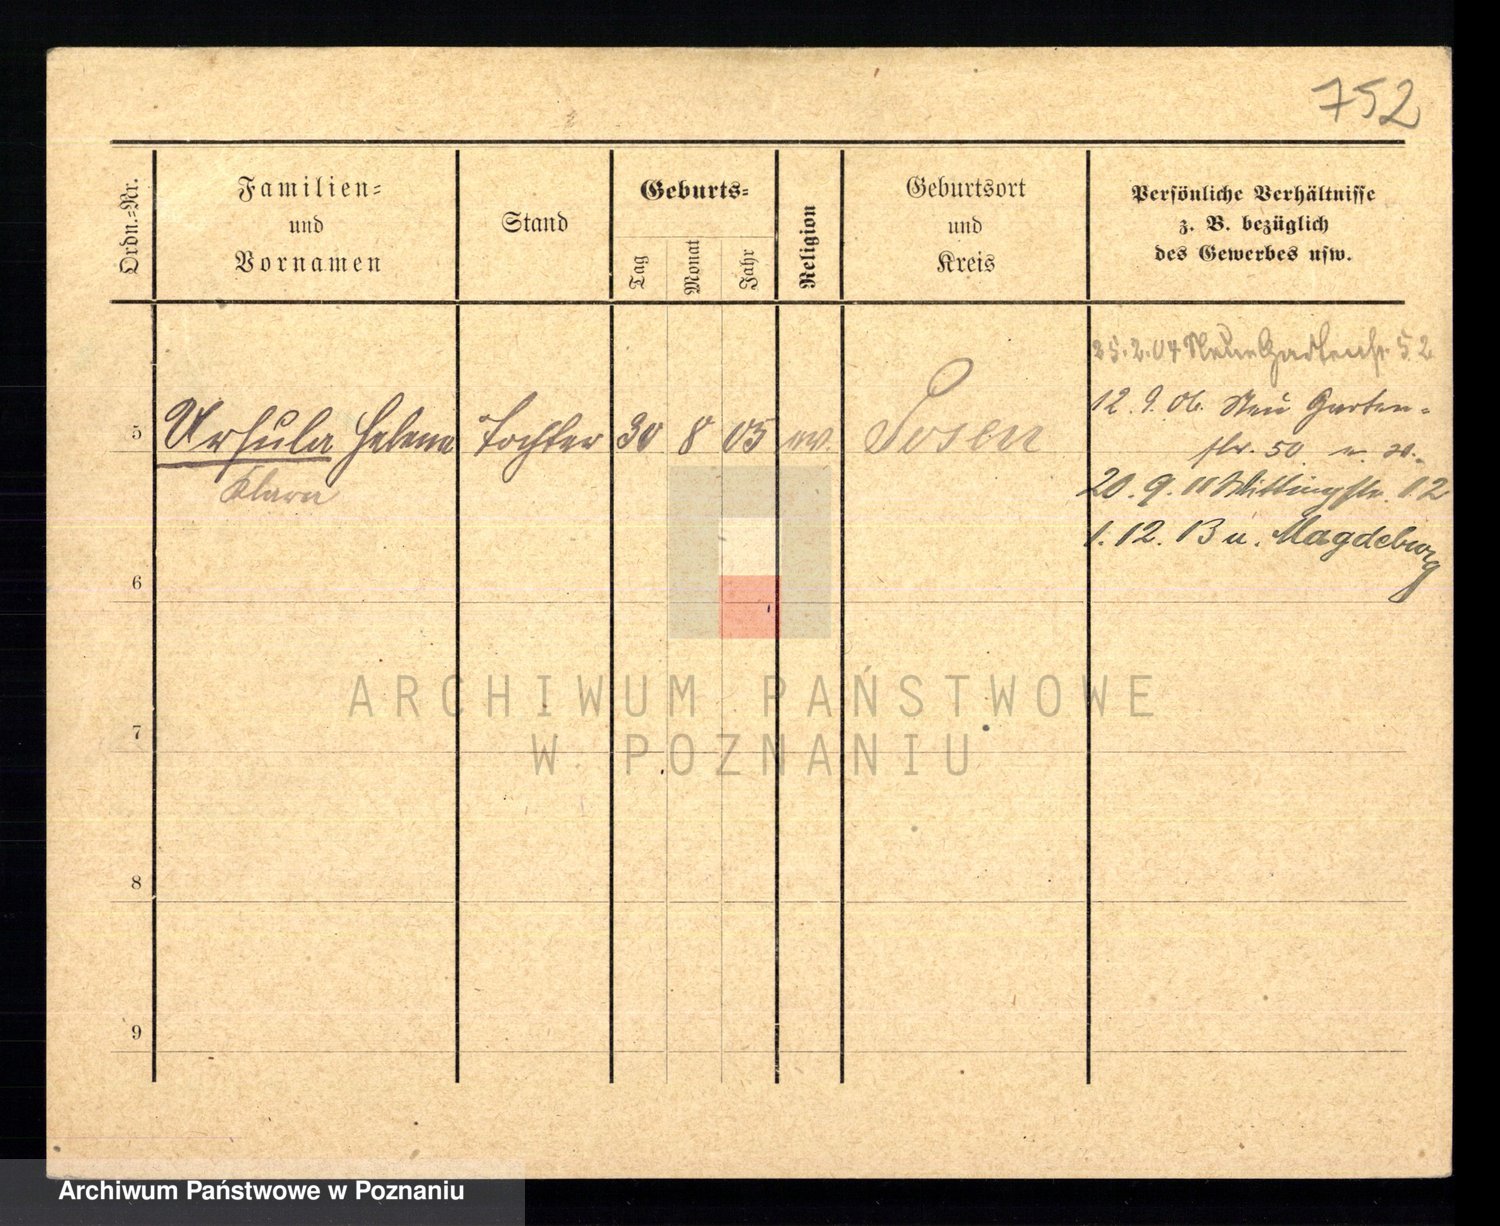 752
Ordn.-Nr.
Familien-
und
Vornamen
Stand
Geburts-
Tag
Monat
Jahr
Religion
Geburtsort
und
Kreis
Persönliche Verhältnisse
z. B. bezüglich
des Gewerbes usw.
25.2.04 Neue Gartenstr. 52
12. 9. 06. Neu Garten-
5 Ursula Helene Tochter 30 8 05 ev. Posen
str. 50
Klara
20. 9. 11 12
1. 12. 13 u. Magdeburg
6
7
8
9
ARCHIWUM PAŃSTWOWE
W POZNANIU
Archiwum Państwowe w Poznaniu